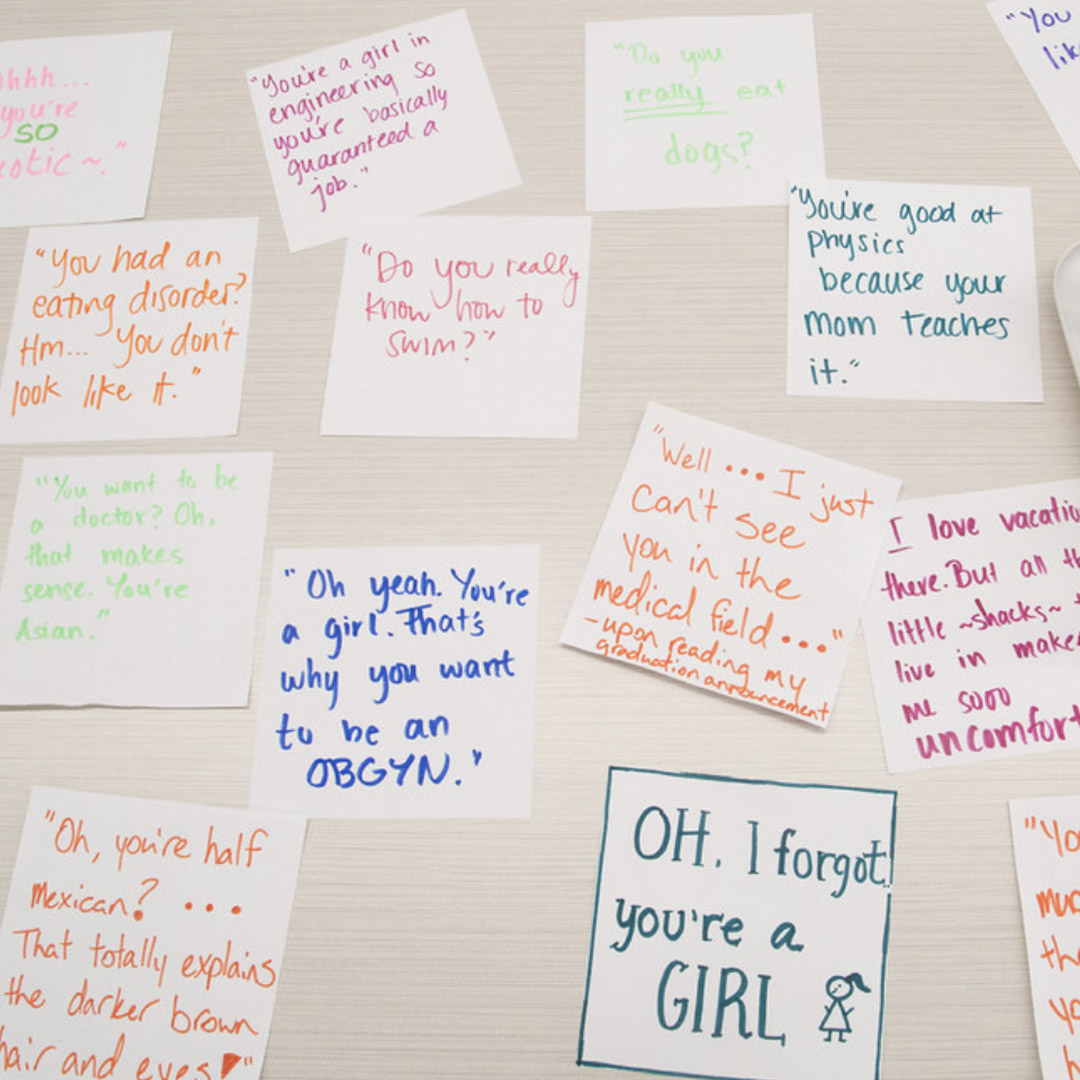 you're
SO
"You're a girl in
engineering so
you're basically
guaranteed a
job."
"Do you
really eat
dogs?
"You
"You're good at
physics
because your
mom teaches
it."
"You had an
eating disorder?
Hm... You don't
look like it."
"Do you really
know how to
swim?"
"You want to be
a doctor? Oh,
that makes
sense. You're
Asian."
"Oh yeah. You're
a girl. That's
why you want
to be an
OBGYN."
"Well ... I just
can't see
you in the
medical field ..."
-upon reading my
graduation announcement
I love
there. But all
little ~shacks~
live in
me sooo
"Oh, you're half
Mexican? ...
That totally explains
the darker brown
hair and eyes"
OH, I forgot
you're a
GIRL